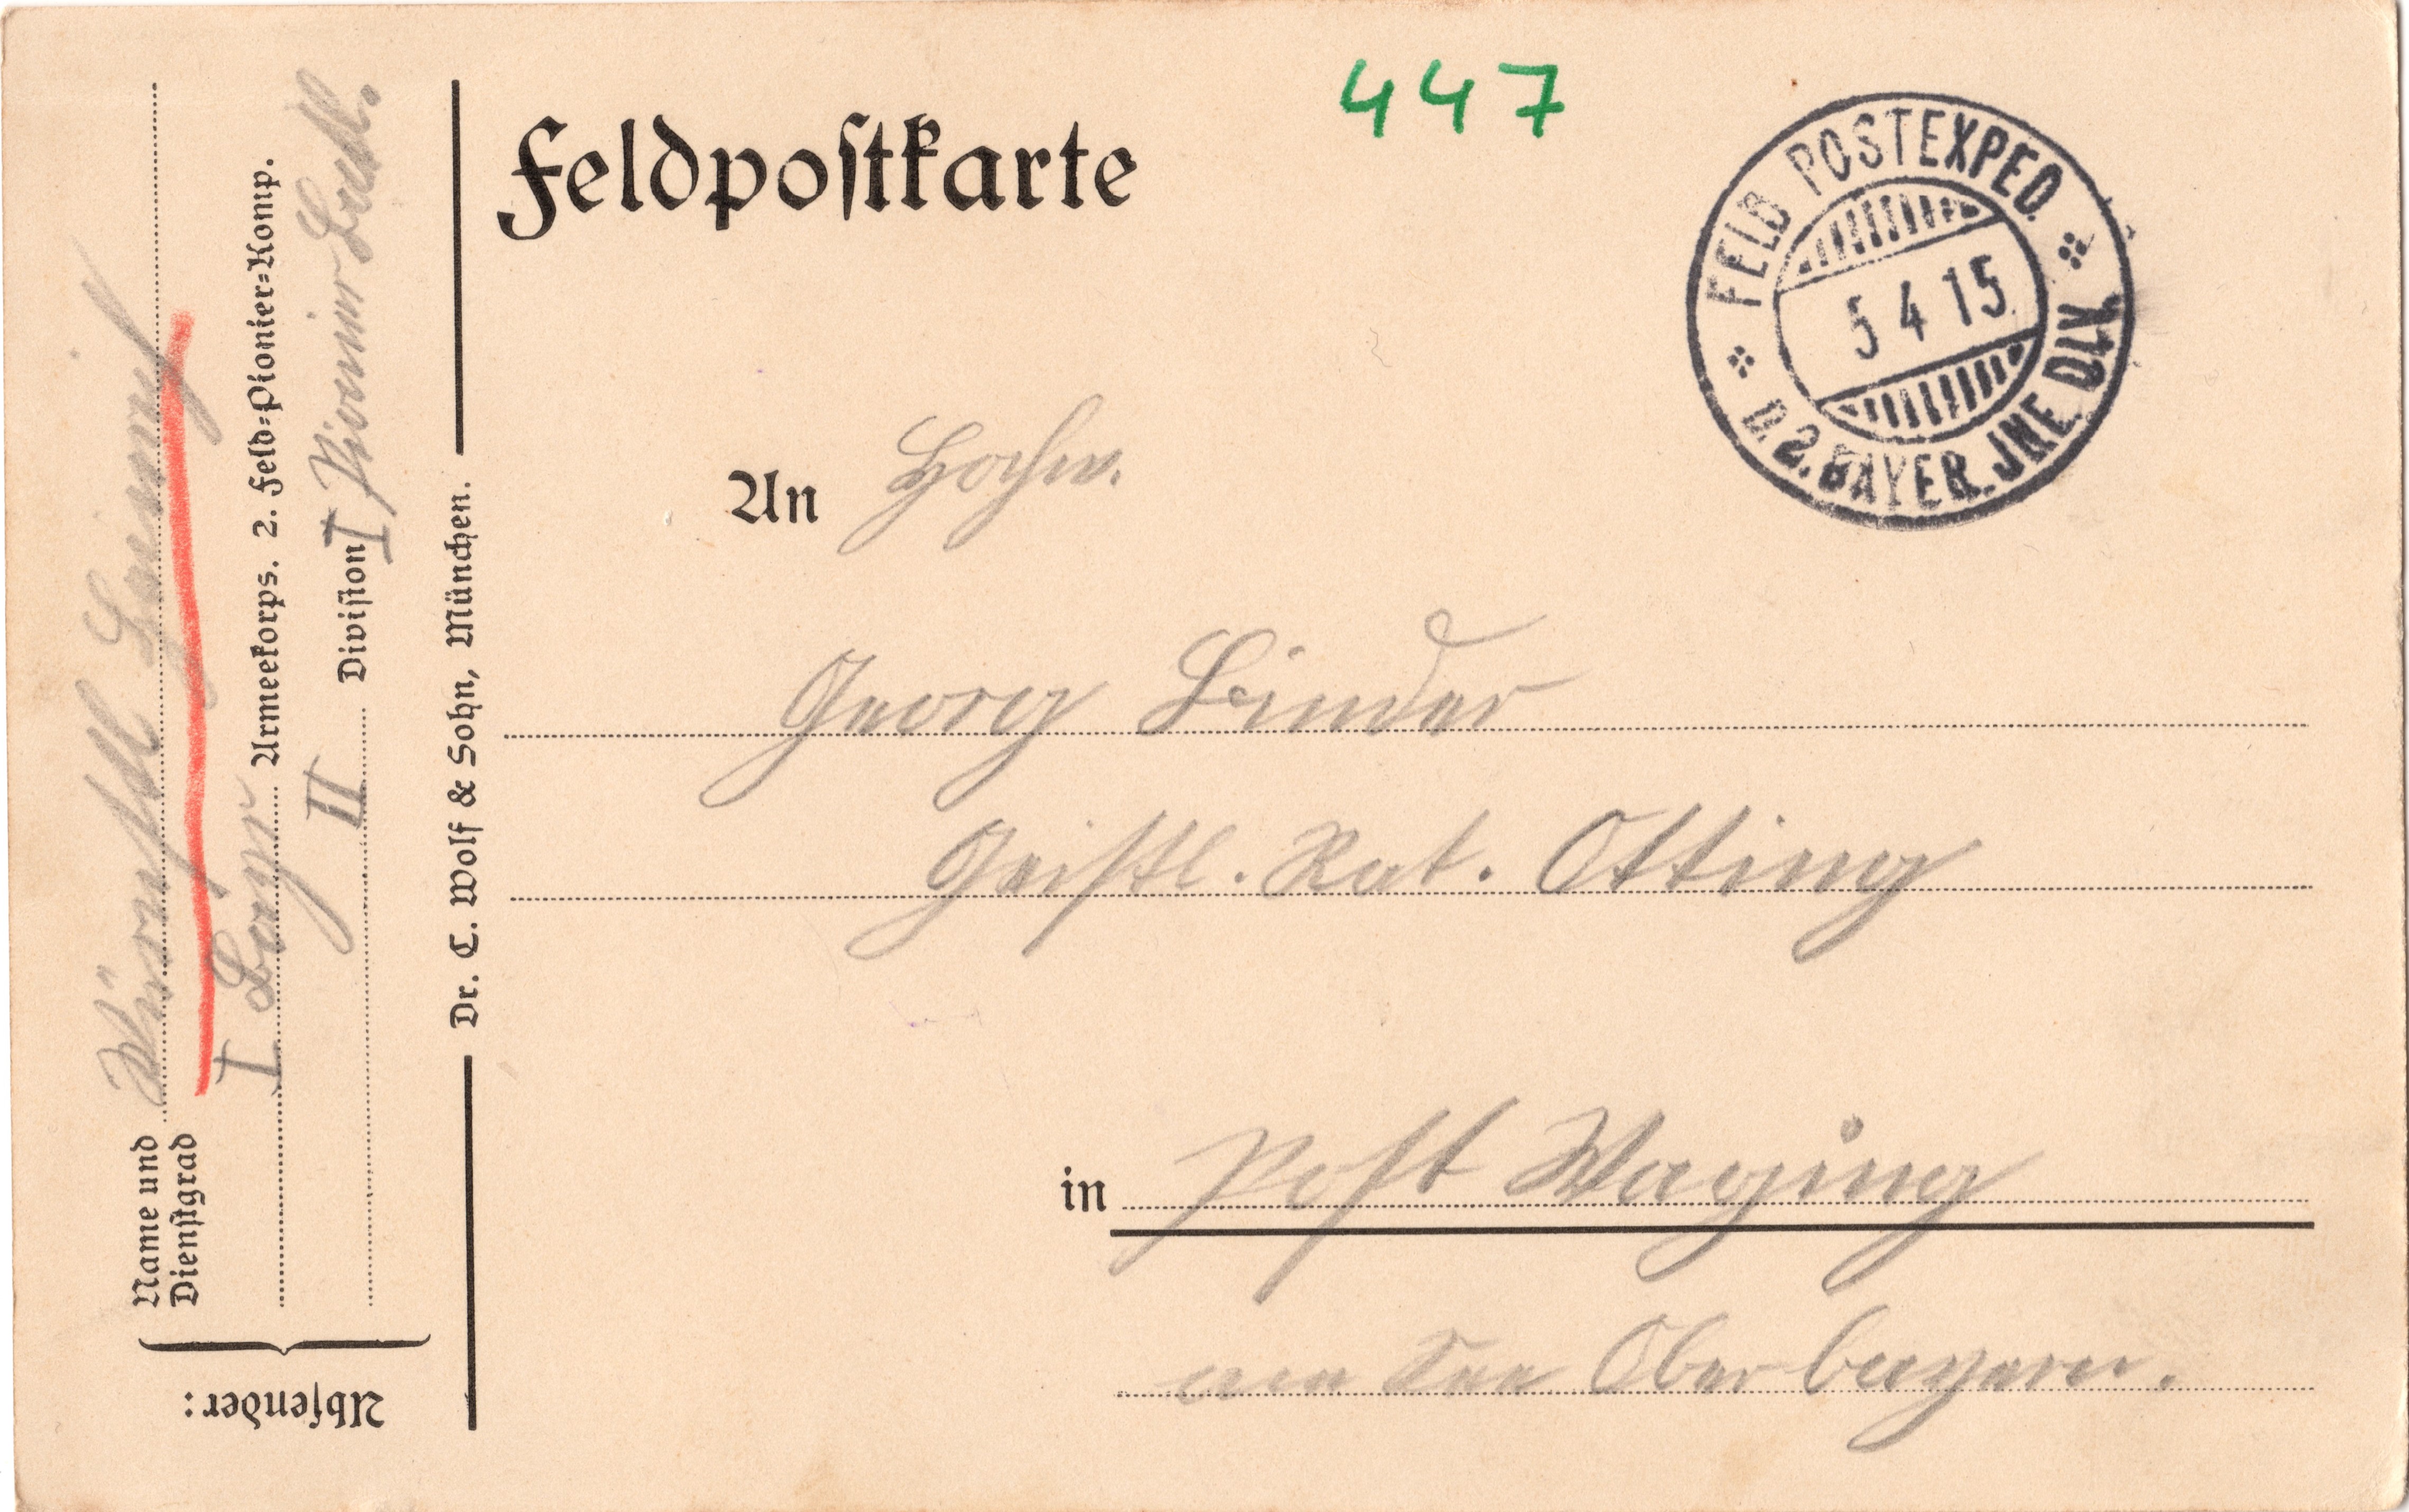 Feldpostkarte
447
FELD POSTEXPED.
5 4 15
D. 2. BAYER. INF. DIV.
An Hochw.
Georg Linder
Geistl. Rat. Otting
in Post Waging
am See Oberbayern.
Dr. C. Wolf & Sohn, München.
Absender:
Name und
Dienstgrad
I Bayr Armeekorps. 2. Feld-Pionier-Komp.
II Division I Pionier Batl.